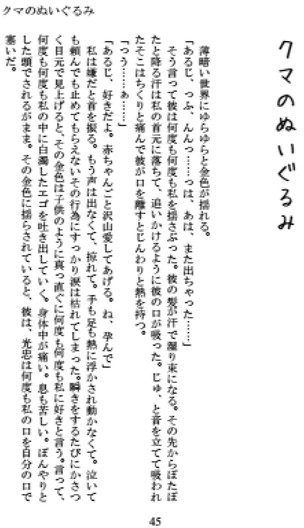 クマのぬいぐるみ
クマのぬいぐるみ
薄暗い世界にゆらゆらと金色が揺れる。
「あるじ、っふ、んんっ……っは、あは、また出ちゃった……」
そう言って彼は何度も何度も私を揺さぶった。彼の髪が汗で湿り束になる。その先からぽたぽ
たと降る汗は私の首元に落ちて、追いかけるように彼の口が吸った。じゅ、と音を立てて吸われ
たそこはちくりと痛んで彼が口を離すとじんわりと熱を持つ。
「っう……ぁ……」
「あるじ、好きだよ。赤ちゃんごと沢山愛してあげる。ね、孕んで」
私は嫌だと首を振る。もう声は出なくて、掠れて。手も足も熱に浮かされ動かなくて。泣いて
も頼んでも止めてもらえないその行為にすっかり涙は枯れてしまった。瞬きをするたびにかさつ
く目元で見上げると、その金色は子供のように真っ直ぐに何度も何度も私に好きと言う。言って、
何度も何度も私の中に白濁したエゴを吐き出していく。身体中が痛い。息も苦しい。ぼんやりと
した頭でされるがまま。その金色に揺らされていると、彼は、光忠は何度も私の口を自分の口で
塞いだ。
45